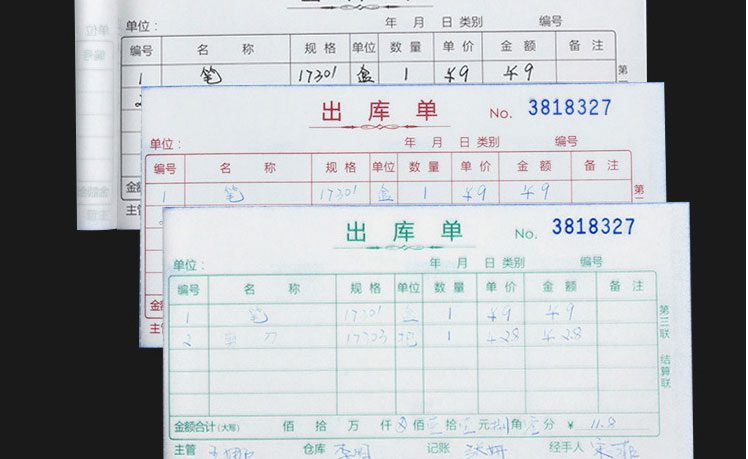 单位： 年 月 日 类别 编号
编号 名 称 规 格 单位 数 量 单 价 金 额 备 注
1 笔 17301 盒 1 ¥9 ¥9
2
金
主管
出 库 单 No. 3818327
单位： 年 月 日 类别 编号
编号 名 称 规 格 单位 数 量 单 价 金 额 备 注
1 笔 17301 盒 1 ¥9 ¥9
第
金
主管
出 库 单 No. 3818327
单位： 年 月 日 类别 编号
编号 名 称 规 格 单位 数 量 单 价 金 额 备 注
1 笔 17301 盒 1 ¥9 ¥9
2 刀 17303 1 ¥28 ¥28
第三联 结算联
金额合计(大写) 佰 拾 万 仟 佰 拾 元 角 分 ¥ 11.8
主管 仓库 李明 记账 张妍 经手人 宋菲